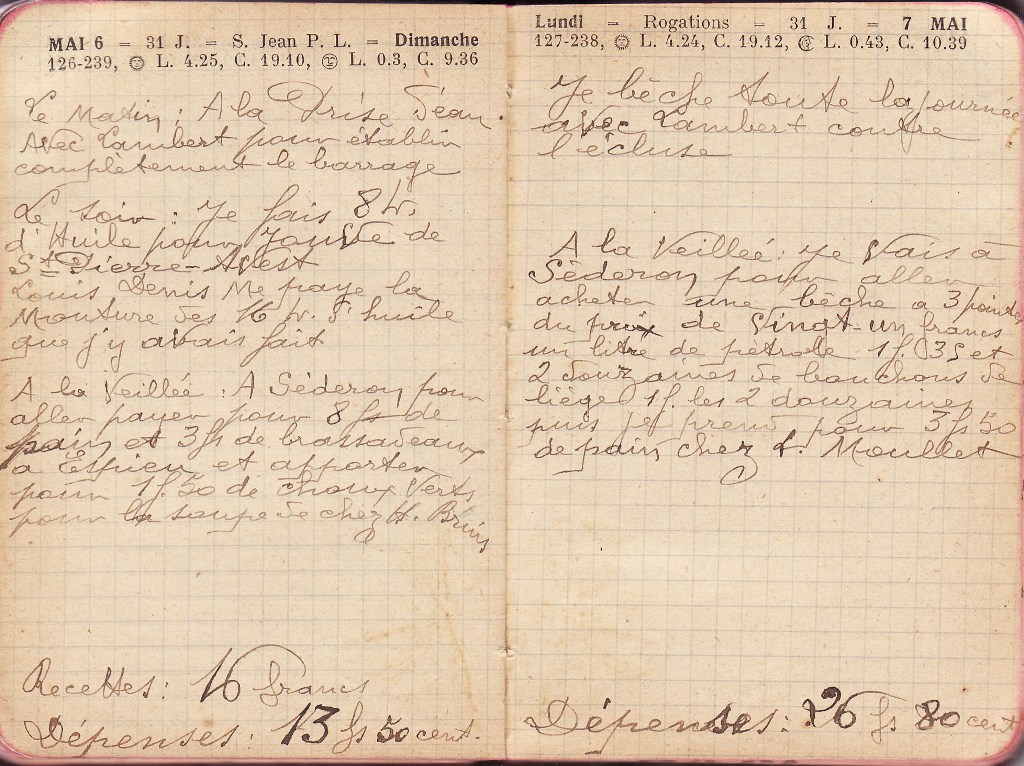 MAI 6 = 31 J. = S. Jean P. L. = Dimanche
126-239, L. 4.25, C. 19.10, L. 0.3, C. 9.36
Le Matin : A la Prise Jean.
Avec Lambert pour établir
complètement le barrage
Le soir : Je fais 8 kr.
d'Huile pour Jouve de
St Pierre-Avest
Louis Denis me paye la
Mouture des 16 kr. d'huile
que j'y avais fait
A la Veillée : A Séderon pour
aller payer pour 8 fs de
pain et 3 fs de brassadeaux
a Espieu et apporter
pour 1f.50 de choux Verts
pour la soupe de chez H. Bruis
Recettes : 16 francs
Dépenses : 13 fs 50 cent.
Lundi = Rogations = 31 J. = 7 MAI
127-238, L. 4.24, C. 19.12, L. 0.43, C. 10.39
Je bêche toute la journée
avec Lambert contre
l'écluse
A la Veillée : Je Vais à
Séderon pour aller
acheter une bêche a 3 pointes
du prix de Vingt-un francs
un litre de pétrole 1f.35 et
2 douzaines de bouchons de
liège 1f. les 2 douzaines
puis je prend pour 3 fs 50
de pain chez L. Moullet
Dépenses : 26 fs 80 cent